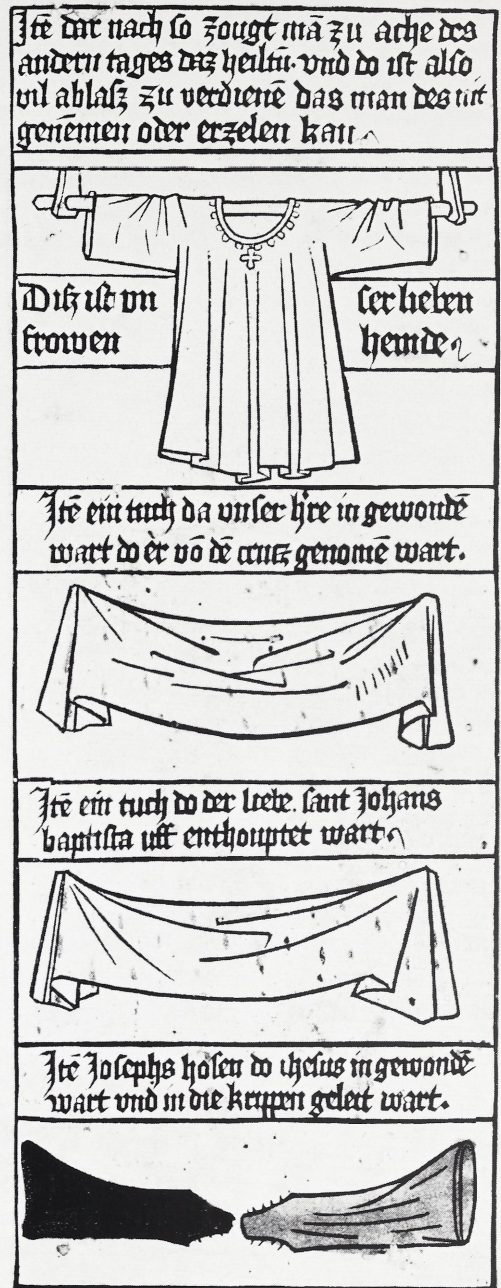 Jtē dar nach so zougt mā zu ache des
andern tages daz heiltū. vnd do ist also
vil ablasz zu verdienē das man des nit
genemen oder erzelen kan
Disz ist vn
frowen
ser lieben
hemde
Jtē ein tuch da vnser h're in gewondē
wart do er vō dē crutz genomē wart.
Jtē ein tuch do der liebe. sant Johans
baptista uff enthouptet wart
Jtē Josephs hosen do ihesus in gewondē
wart vnd in die krippen geleit wart.